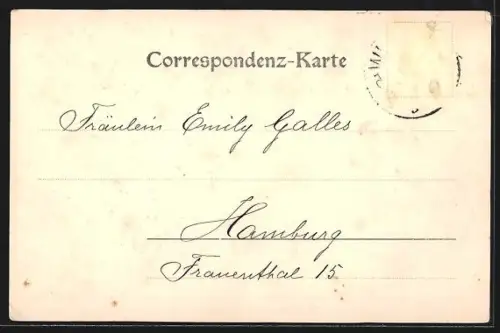 Correspondenz-Karte
Fräulein Emily Galles
Hamburg
Frauenthal 15.